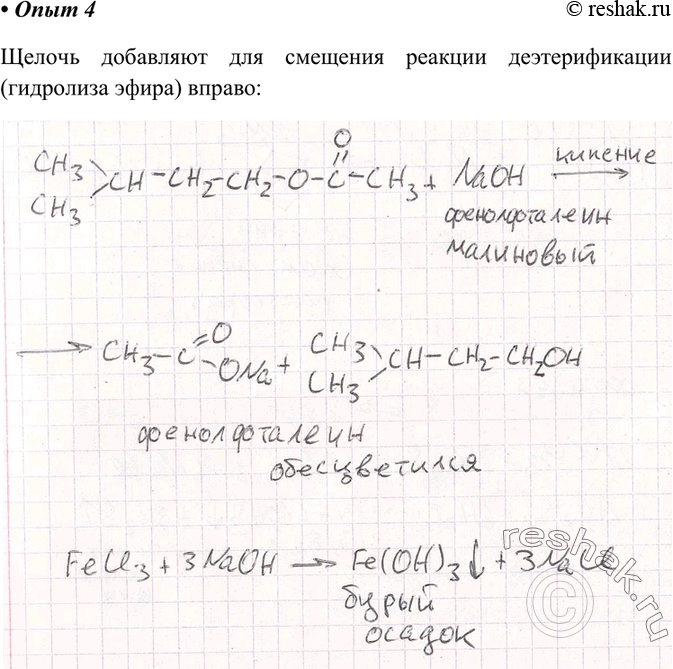 • Опыт 4
© reshak.ru
Щелочь добавляют для смещения реакции деэтерификации
(гидролиза эфира) вправо:
O
CH3 || кипение
CH3 > CH – CH2 – CH2 – O – C – CH3 + NaOH ⟶
фенолфталеин
малиновый
⟶ CH3 – C =O ONa + CH3 CH3 > CH – CH2 – CH2OH
фенолфталеин
обесцветился
FeCl3 + 3NaOH ⟶ Fe(OH)3↓ + 3NaCl
бурый
осадок
reshak.ru
©